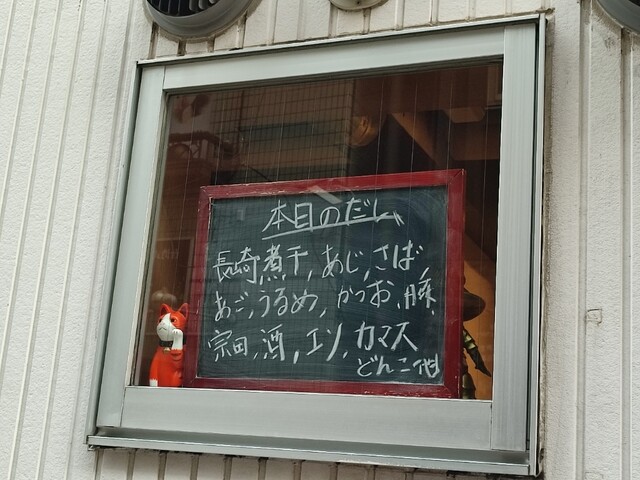 本日のだし
長崎煮干,あじ,さば,
あご,うるめ,かつお,豚,
宗田,酒,エソ,カマス
どんこ他